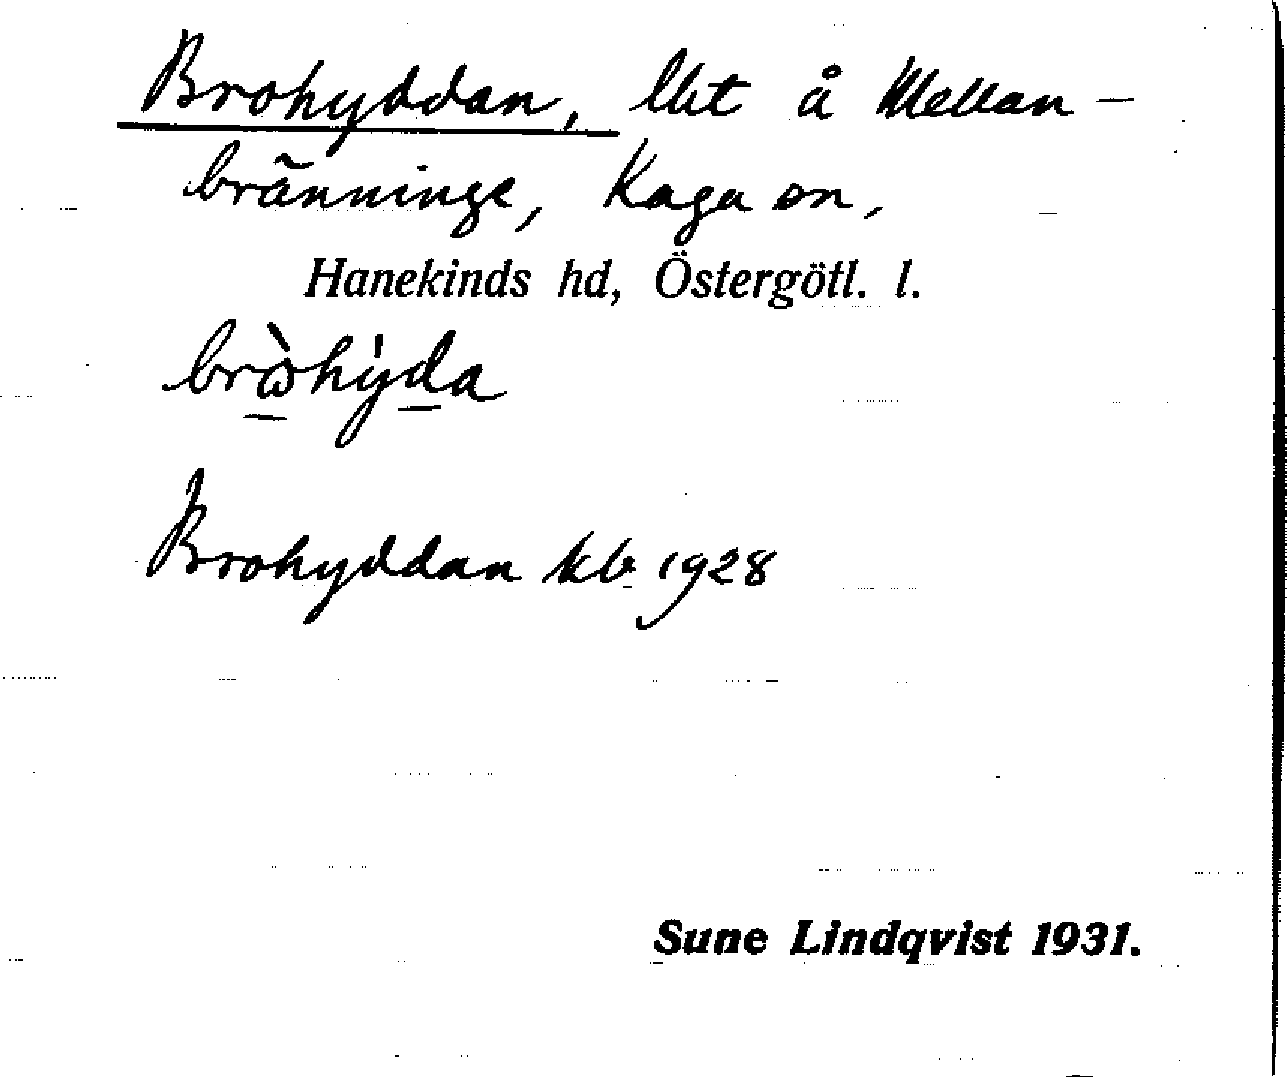 Brohyddan, lht å Mellan-
bränninge, Kaga sn,
Hanekinds hd, Östergötl. l.
brὼhy̍da
Brohyddan kb 1928
Sune Lindqvist 1931.